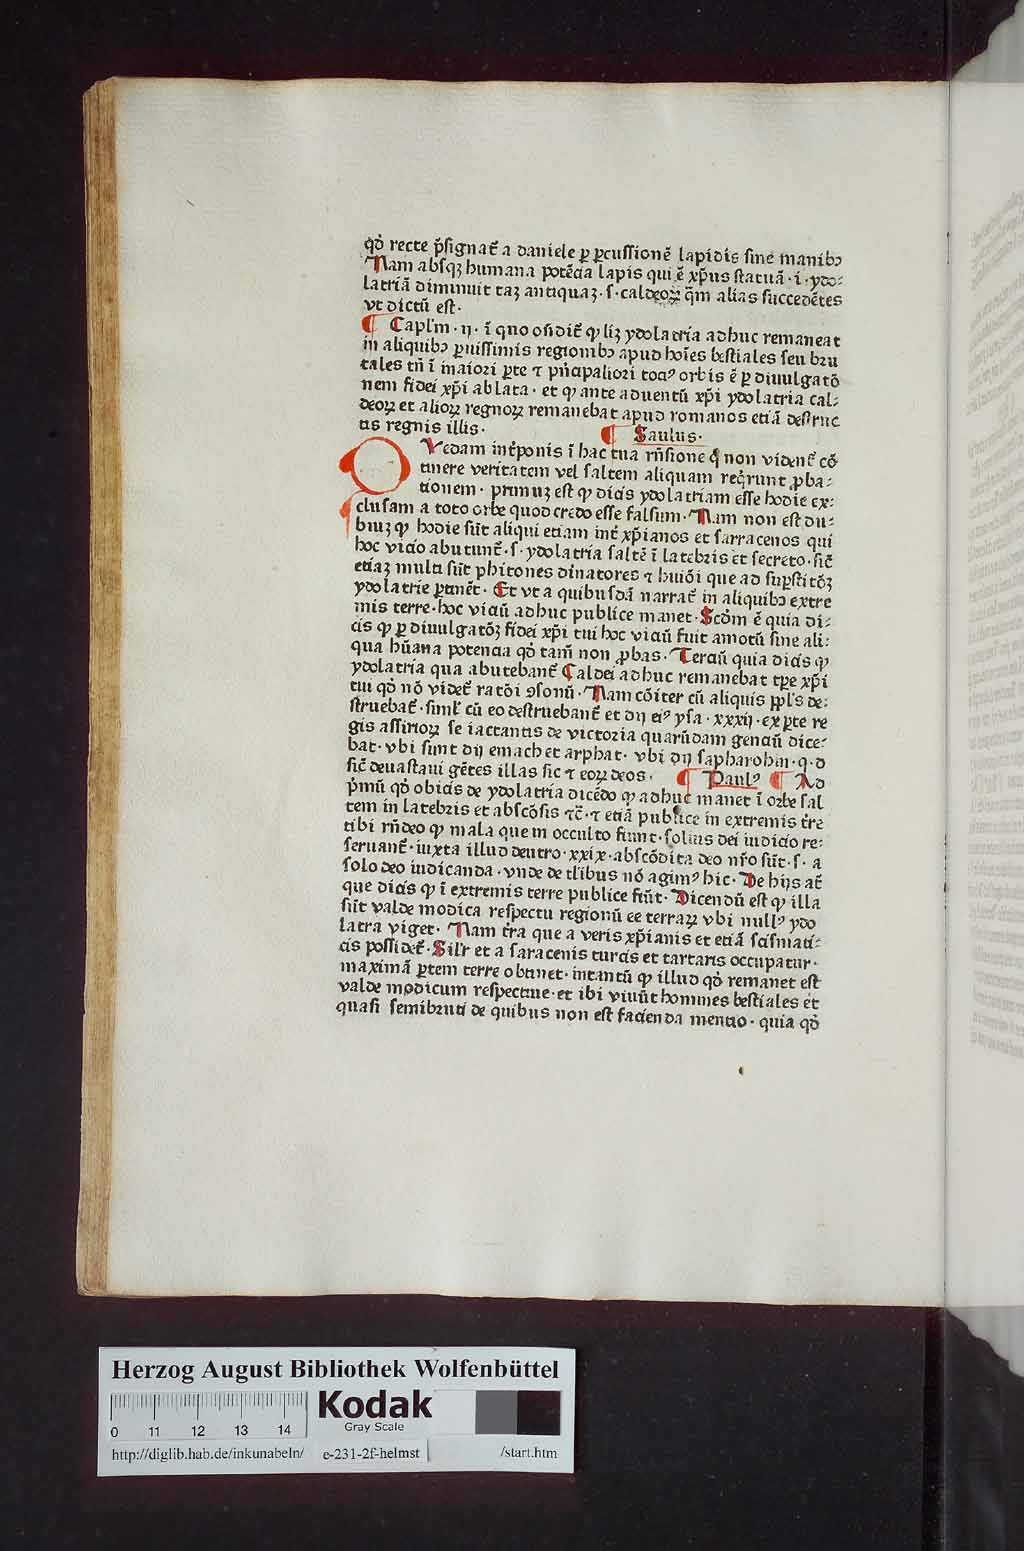 qđ recte p̃signat̃ a daniele p̲ p̲cussionẽ lapidis sine manibꝰ
Nam absqꝫ humana potẽcia lapis qui ẽ xp̃us statuã · i · ydo-
latriã diminuit taꝫ antiquaꝫ · s · caldeoꝝ q̃m alias succedẽtes
vt dictũ est ·
¶ Capl'm · ij · ĩ quo oñdit̃ ꝙ lꝫ ydolatria adhuc remaneat
in aliquibꝰ p̲uissimis regionibꝰ apud hoĩes bestiales seu bru
tales tñ ĩ maiori p̲te ⁊ pñcipaliori tociꝰ orbis ẽ p̲ diuulgatõ
nem fidei xp̃i ablata · et ꝙ ante aduentũ xp̃i ydolatria cal-
deoꝝ et alioꝝ regnoꝝ remanebat apud romanos etiã destruc
tis regnis illis · ¶ Saulus ·
QVedam int̃ponis ĩ hac tua rñsione q̃ non vident̃ cõ
tinere veritatem vel saltem aliquam reqrunt ꝓba-
tionem · primuꝫ est ꝙ dicis ydolatriam esse hodie ex-
clusam a toto orbe quod credo esse falsum · Nam non est du-
biuꝫ ꝙ hodie sũt aliqui etiam int̃ xp̃ianos et sarracenos qui
hoc vicio abutunt̃ · s · ydolatria saltẽ ĩ latebris et secreto · sic̃
etiaꝫ multi sũt phitones diuatores ⁊ huiõi que ad sup̲stitõꝫ
ydolatrie p̲tinẽt · Et vt a quibusdã narrat̃ in aliquibꝰ extre
mis terre · hoc viciũ adhuc publice manet · Scđm ẽ quia di-
cis ꝙ p̲ diuulgatõꝫ fidei xp̃i tui hoc viciũ fuit amotũ sine ali-
qua hũana potencia qđ tam̃ non ꝓbas · Terciũ quia dicis ꝙ
ydolatria qua abutebant̃ Caldei adhuc remanebat tp̲e xp̃i
tui qđ nõ videt̃ ratõi ꝯsonũ · Nam cõiter cũ aliquis pp̲l's de-
struebat̃ · simł cũ eo destruebant̃ et dij eiꝰ ysa · xxxij · ex p̲te re
gis assirioꝝ se iactantis de victoria quarũdam genciũ dice-
bat · vbi sunt dij emach et arphat · vbi dij sapharohin · q · d
sic̃ deuastaui gẽtes illas sic ⁊ eoꝝ deos · ¶ Paulꝰ ¶ Ad
p̃mũ qđ obicis de ydolatria dicẽdo ꝙ adhuc manet ĩ orbe sal
tem in latebris et abscõsis ⁊c̃ · ⁊ etiã publice in extremis t̃re
tibi rñdeo ꝙ mala que in occulto fiunt · solius dei iudicio re-
seruant̃ · iuxta illud deutro · xxix · abscõdita deo nr̃o sũt · s · a
solo deo iudicanda · vnde de tl'ibus nõ agimꝰ hic · De hijs at̃
que dicis ꝙ ĩ extremis terre publice fiũt · Dicendũ est ꝙ illa
sũt valde modica respectu regionũ ee terraꝝ vbi nullꝰ ydo
latra viget · Nam t̃ra que a veris xp̃ianis et etiã scismati-
cis possidet̃ · Sil'r et a saracenis turcis et tartaris occupatur ·
maximã p̲tem terre obtinet · intantũ ꝙ illud qđ remanet est
valde modicum respectiue · et ibi viuũt homines bestiales et
quasi semibruti de quibus non est facienda mencio · quia qđ
Herzog August Bibliothek Wolfenbüttel
0 11 12 13 14
Kodak
Gray Scale
http://diglib.hab.de/inkunabeln/ e-231-2f-helmst /start.htm